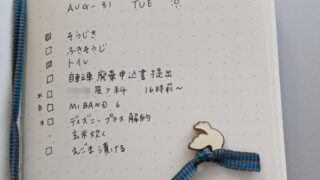 AUG-31 TUE
そうじき
ふきそうじ
トイレ
自転車 廃棄申込書 提出
科 16時前～
MI BAND 6
ディズニープラス 解約
玄米炊く
えごま漬ける